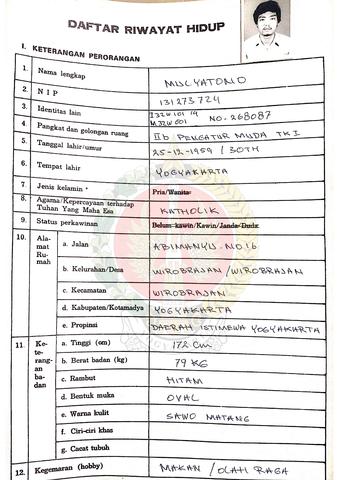 DAFTAR RIWAYAT HIDUP
I. KETERANGAN PERORANGAN
1. Nama lengkap MULYATONO
2. N I P 131273724
3. Identitas lain NO. 268087
4. Pangkat dan golongan ruang IIb PENGATUR MUDA TK I
5. Tanggal lahir/umur 25-12-1959 / 30TH
6. Tempat lahir YOGYAKARTA
7. Jenis kelamin * Pria/Wanita
8. Agama/Kepercayaan terhadap Tuhan Yang Maha Esa KATHOLIK
9. Status perkawinan Belum kawin/Kawin/Janda/Duda
10. Alamat Rumah a. Jalan ABIMANYU. NO 16
b. Kelurahan/Desa WIROBRAJAN /WIROBRAJAN
c. Kecamatan WIROBRAJAN
d. Kabupaten/Kotamadya YOGYAKARTA
e. Propinsi DAERAH ISTIMEWA YOGYAKARTA
11. Keterangan badan a. Tinggi (cm) 172 Cm
b. Berat badan (kg) 79 KG
c. Rambut HITAM
d. Bentuk muka OVAL
e. Warna kulit SAWO MATANG
f. Ciri-ciri khas
g. Cacat tubuh
12. Kegemaran (hobby) MAKAN / OLAH RAGA